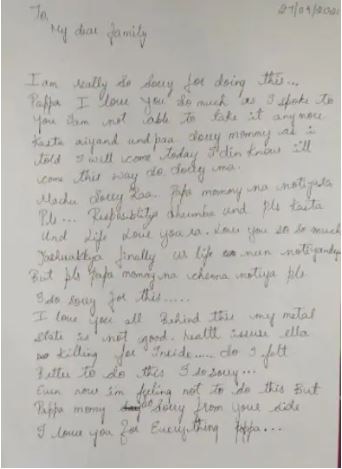 To,
27/04/202
My dear family
I am really so sorry for doing this...
Pappa I love you so much as I spoke to
you I am not able to take it anymore
Kasta aiyand und paa sorry mommy as i
told I will come today I din know ill
come this way so sorry ma.
Machu sorry Raa. Papa mommy na
Pls... Responsibilty dhumba und pls kasta
Und life Love you ra. Love you so so much
finally ur life nuv
But pls Papa mommy na chenna notiya pls
I so sorry for this.....
I love you all Behind this my metal
state is not good. health issuse ella
killing for Inside..... So I felt
Better to do this I so sorry...
Even now i'm feeling not to do this But
Pappa momy sorry from your side
I love you for Everything Pappa...